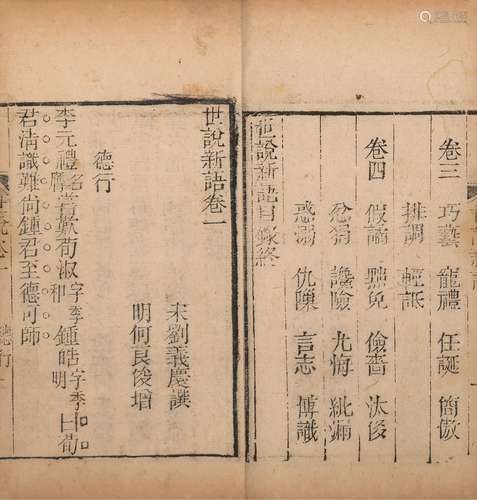 卷三 巧藝 寵禮 任誕 簡傲
排調 輕詆
卷四 假譎 黜免 儉嗇 汰侈
忿狷 讒險 尤悔 紕漏
惑溺 仇隟 言志 博識
世說新語目錄終
世說新語卷一
宋劉義慶撰
明何良俊增
德行
李元禮名膺嘗歎荀淑字季和鍾皓字季明曰荀
君清識難尚鍾君至德可師
世說卷一 德行